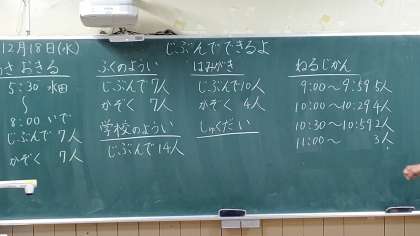 12月18日(水)
じぶんでできるよ
あさおきる
5:30 水田
〜
8:00 いで
じぶんで 7人
かぞく 7人
ふくのようい
じぶんで 7人
かぞく 7人
学校のようい
じぶんで 14人
はみがき
じぶんで 10人
かぞく 4人
しゅくだい
ねるじかん
9:00〜9:59 5人
10:00〜10:29 4人
10:30〜10:59 2人
11:00〜 3人